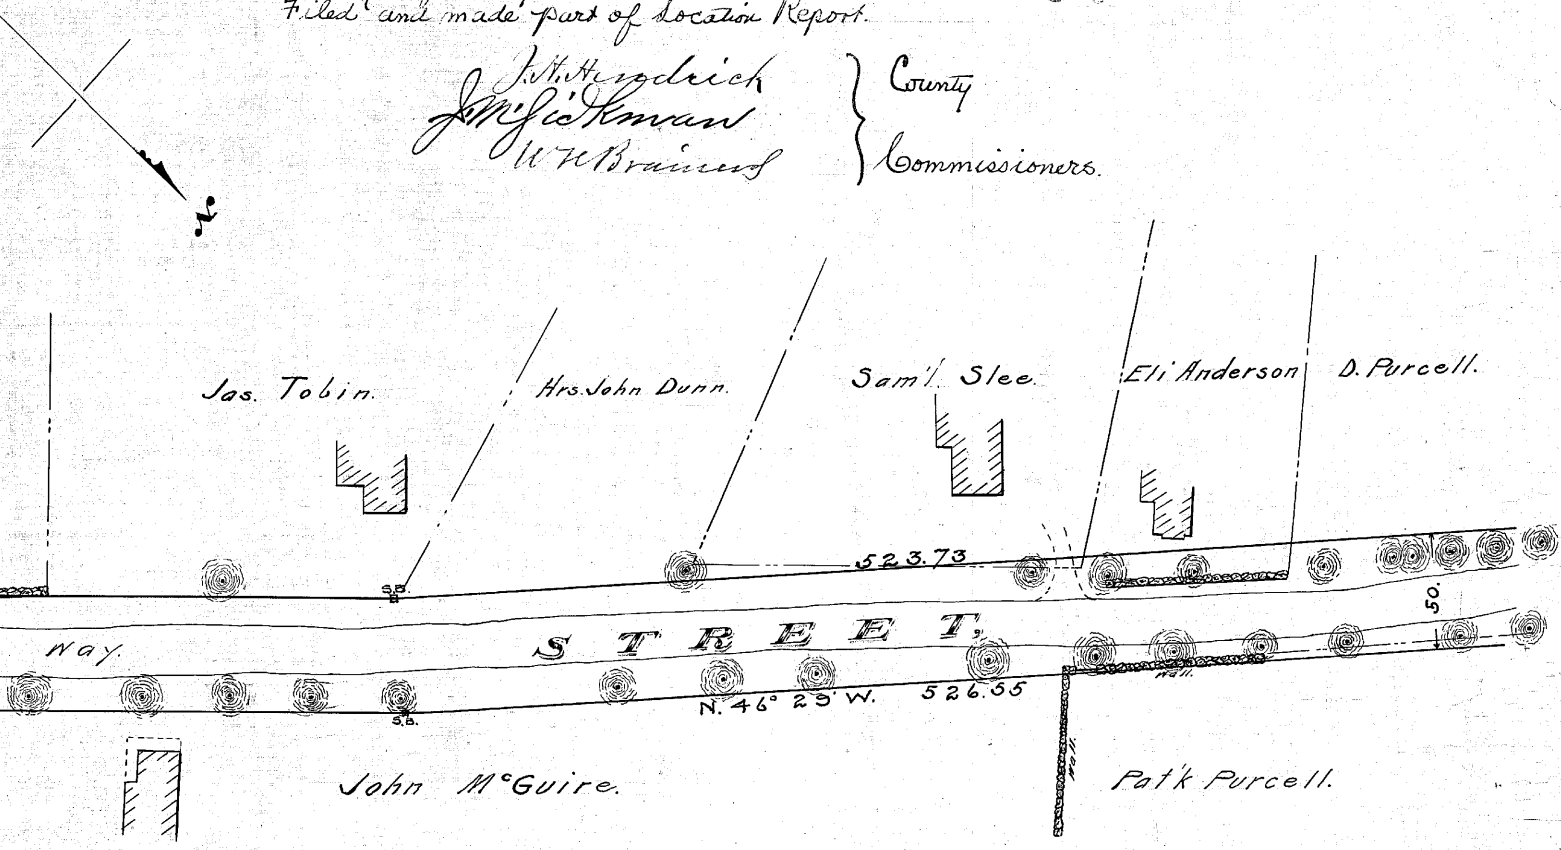 Filed and made part of Location Report.
J. H. Hendrick
County
W H
Commissioners.
N.
Jas. Tobin.
Hrs. John Dunn.
Sam'l. Slee.
Eli Anderson
D. Purcell.
523.73
S.B.
50.
Way.
STREET,
N. 46° 29' W. 526.55
Wall.
S.B.
Wall.
John McGuire.
Pat'k Purcell.